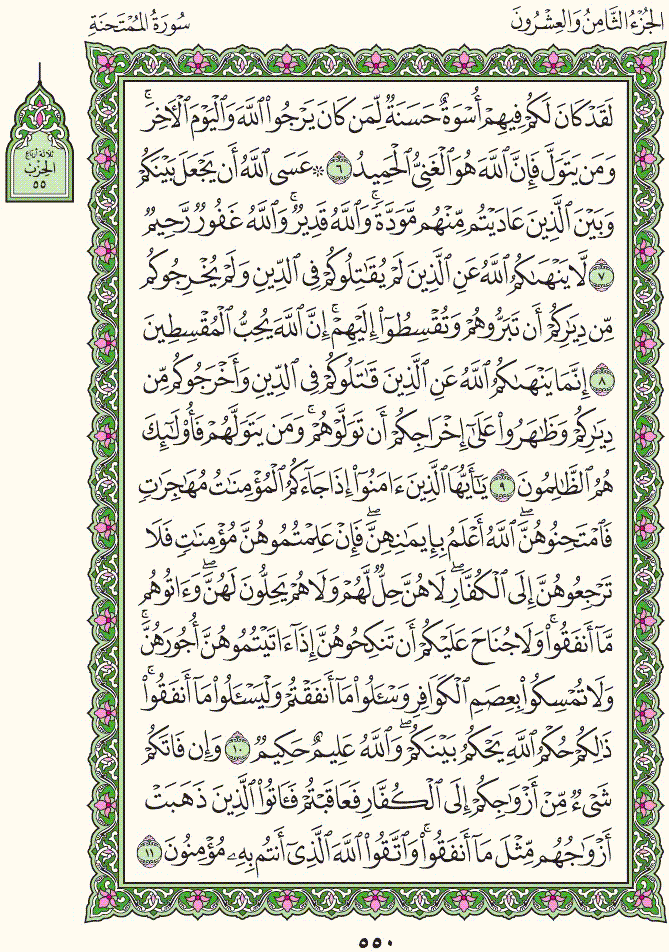 الجُزْءُ الثَّامِنُ وَالعِشْرُونَ
سُورَةُ المُمْتَحنَةِ
ثلاثة أرباع
الحِزْبُ
٥٥
لَقَدْ كَانَ لَكُمْ فِيهِمْ أُسْوَةٌ حَسَنَةٌ لِّمَن كَانَ يَرْجُوا۟ ٱللَّهَ وَٱلْيَوْمَ ٱلْـَٔاخِرَ ۚ
وَمَن يَتَوَلَّ فَإِنَّ ٱللَّهَ هُوَ ٱلْغَنِىُّ ٱلْحَمِيدُ ٦ ۞ عَسَى ٱللَّهُ أَن يَجْعَلَ بَيْنَكُمْ
وَبَيْنَ ٱلَّذِينَ عَادَيْتُم مِّنْهُم مَّوَدَّةً ۚ وَٱللَّهُ قَدِيرٌ ۚ وَٱللَّهُ غَفُورٌ رَّحِيمٌ
٧ لَّا يَنْهَىٰكُمُ ٱللَّهُ عَنِ ٱلَّذِينَ لَمْ يُقَـٰتِلُوكُمْ فِى ٱلدِّينِ وَلَمْ يُخْرِجُوكُم
مِّن دِيَـٰرِكُمْ أَن تَبَرُّوهُمْ وَتُقْسِطُوٓا۟ إِلَيْهِمْ ۚ إِنَّ ٱللَّهَ يُحِبُّ ٱلْمُقْسِطِينَ
٨ إِنَّمَا يَنْهَىٰكُمُ ٱللَّهُ عَنِ ٱلَّذِينَ قَـٰتَلُوكُمْ فِى ٱلدِّينِ وَأَخْرَجُوكُم مِّن
دِيَـٰرِكُمْ وَظَـٰهَرُوا۟ عَلَىٰٓ إِخْرَاجِكُمْ أَن تَوَلَّوْهُمْ ۚ وَمَن يَتَوَلَّهُمْ فَأُو۟لَـٰٓئِكَ
هُمُ ٱلظَّـٰلِمُونَ ٩ يَـٰٓأَيُّهَا ٱلَّذِينَ ءَامَنُوٓا۟ إِذَا جَآءَكُمُ ٱلْمُؤْمِنَـٰتُ مُهَـٰجِرَٰتٍ
فَٱمْتَحِنُوهُنَّ ۖ ٱللَّهُ أَعْلَمُ بِإِيمَـٰنِهِنَّ ۖ فَإِنْ عَلِمْتُمُوهُنَّ مُؤْمِنَـٰتٍ فَلَا
تَرْجِعُوهُنَّ إِلَى ٱلْكُفَّارِ ۖ لَا هُنَّ حِلٌّ لَّهُمْ وَلَا هُمْ يَحِلُّونَ لَهُنَّ ۖ وَءَاتُوهُم
مَّآ أَنفَقُوا۟ ۚ وَلَا جُنَاحَ عَلَيْكُمْ أَن تَنكِحُوهُنَّ إِذَآ ءَاتَيْتُمُوهُنَّ أُجُورَهُنَّ ۚ
وَلَا تُمْسِكُوا۟ بِعِصَمِ ٱلْكَوَافِرِ وَسْـَٔلُوا۟ مَآ أَنفَقْتُمْ وَلْيَسْـَٔلُوا۟ مَآ أَنفَقُوا۟ ۚ
ذَٰلِكُمْ حُكْمُ ٱللَّهِ يَحْكُمُ بَيْنَكُمْ ۖ وَٱللَّهُ عَلِيمٌ حَكِيمٌ ١٠ وَإِن فَاتَكُمْ
شَىْءٌ مِّنْ أَزْوَٰجِكُمْ إِلَى ٱلْكُفَّارِ فَعَاقَبْتُمْ فَـَٔاتُوا۟ ٱلَّذِينَ ذَهَبَتْ
أَزْوَٰجُهُم مِّثْلَ مَآ أَنفَقُوا۟ ۚ وَٱتَّقُوا۟ ٱللَّهَ ٱلَّذِىٓ أَنتُم بِهِۦ مُؤْمِنُونَ ١١
٥٥٠